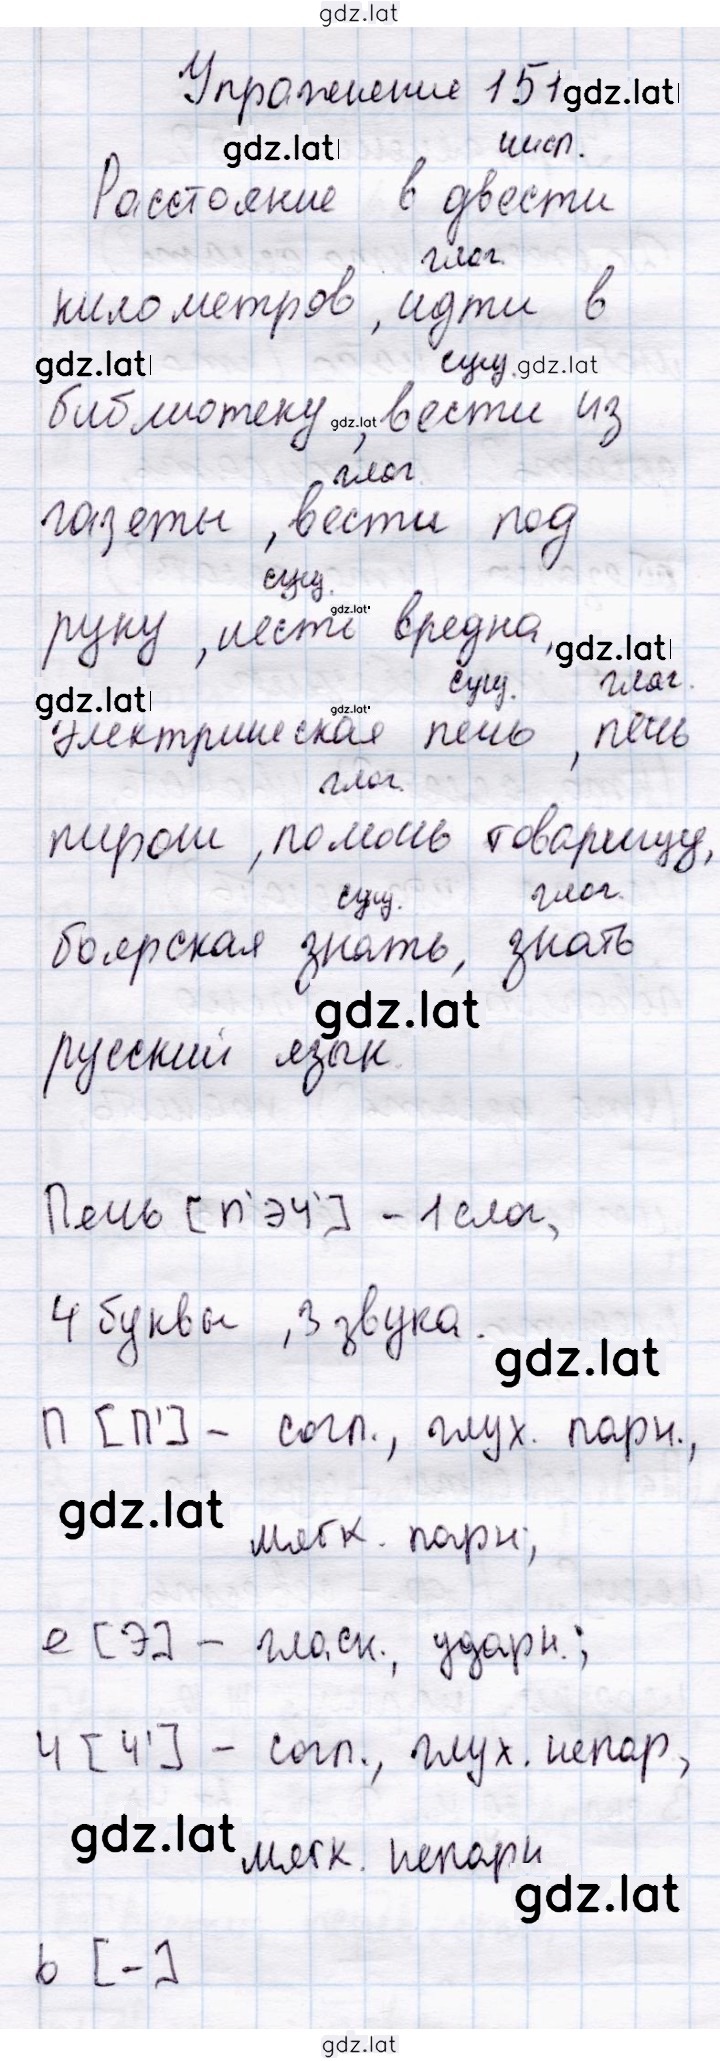 gdz.lat
Упражнение 151
gdz.lat
gdz.lat
числ.
Расстояние в двести
глаг.
километров, идти в
gdz.lat
сущ.
gdz.lat
библиотеку, вести из
gdz.lat
глаг.
газеты, вести под
сущ.
gdz.lat
руку, лесть вредна,
gdz.lat
gdz.lat
сущ. глаг.
gdz.lat
электрическая печь, печь
глаг.
пироги, помочь товарищу,
сущ. глаг.
боярская знать, знать
gdz.lat
русский язык.
Печь [п'эч'] - 1 слог,
4 буквы, 3 звука.
gdz.lat
п [п'] - согл., глух. парн.,
gdz.lat
мягк. парн;
е [э] - гласн., ударн.;
ч [ч'] - согл., глух. непар,
gdz.lat
мягк. непарн
gdz.lat
ь [-]
gdz.lat